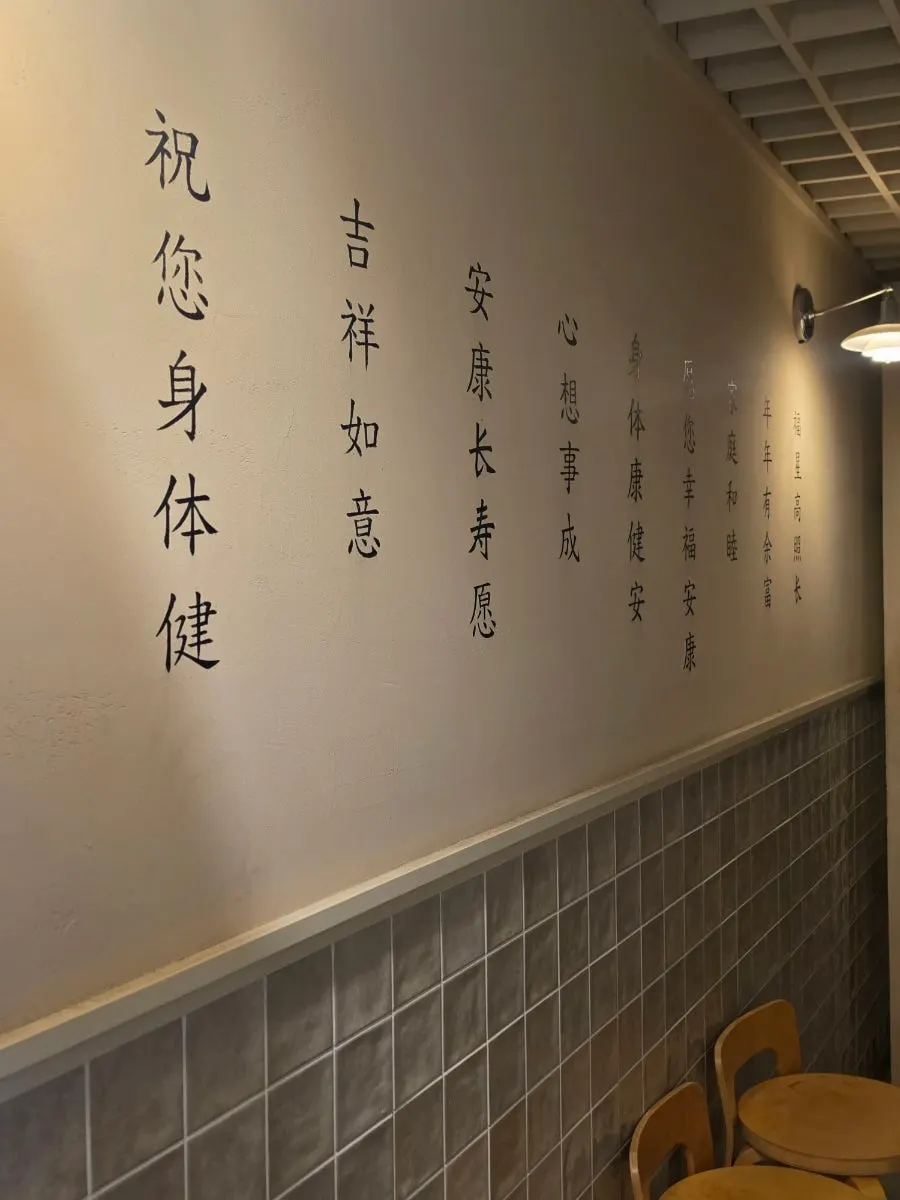 祝您身体健
吉祥如意
安康长寿愿
心想事成
身体康健安
愿您幸福安康
家庭和睦
年年有余富
福星高照长